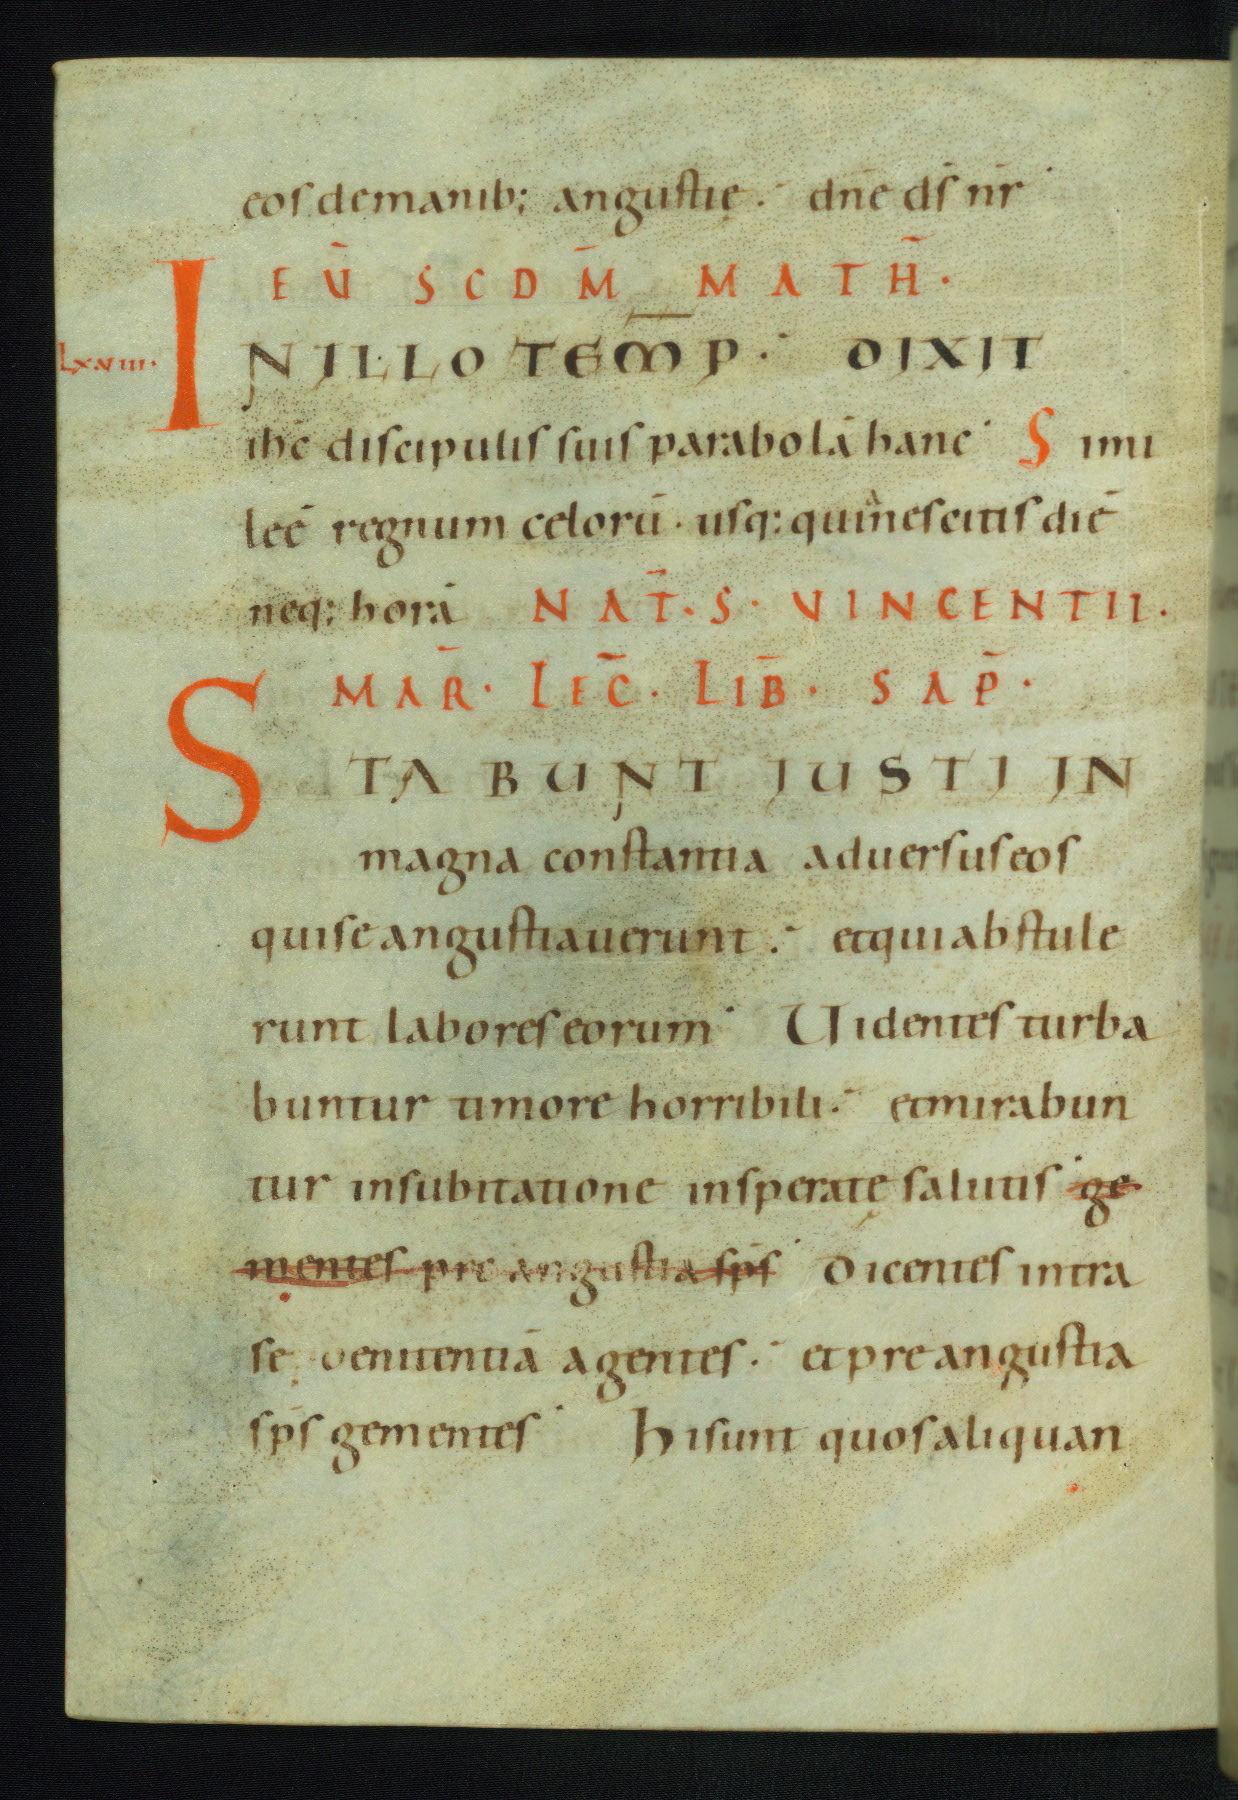 eos de manib; angustię. dn̄e ds̄ nr̄
EŪ SCDM̄ MATH̄.
lxviiii.
IN ILLO TEM̄P. DIXIT
ihc̄ discipulis suis parabolā hanc Simi
leē regnum celorū. usq: quia nescitis diē
neq: horā NAT̄. S. VINCENTII.
MAR̄. LEC̄. LIB̄. SAP̄.
STABUNT IUSTI IN
magna constantia aduersus eos
qui se angustiauerunt. et qui abstule
runt labores eorum Uidentes turba
buntur timore horribili. et mirabun
tur in subitatione insperatę salutis ge
mentes pre angustia sp̄s dicentes intra
se penitentiā agentes. et pre angustia
sp̄s gementes hi sunt quos aliquan